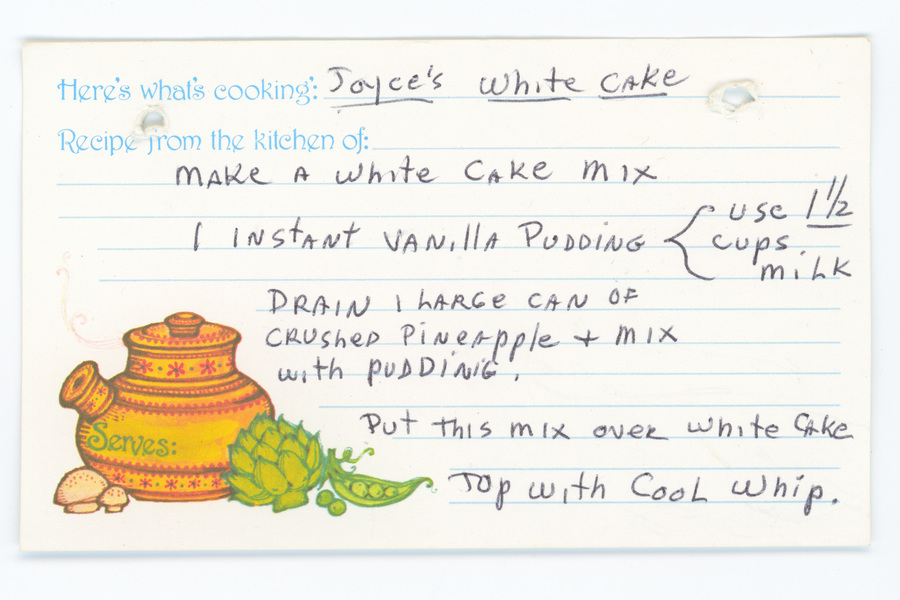 Here's what's cooking: Joyce's White Cake
Recipe from the kitchen of:
Make a white cake mix
1 Instant Vanilla Pudding { use 1 1/2
cups
milk
Drain 1 large can of
crushed pineapple + mix
with puddinig.
Put this mix over white cake
Serves:
Top with Cool Whip.